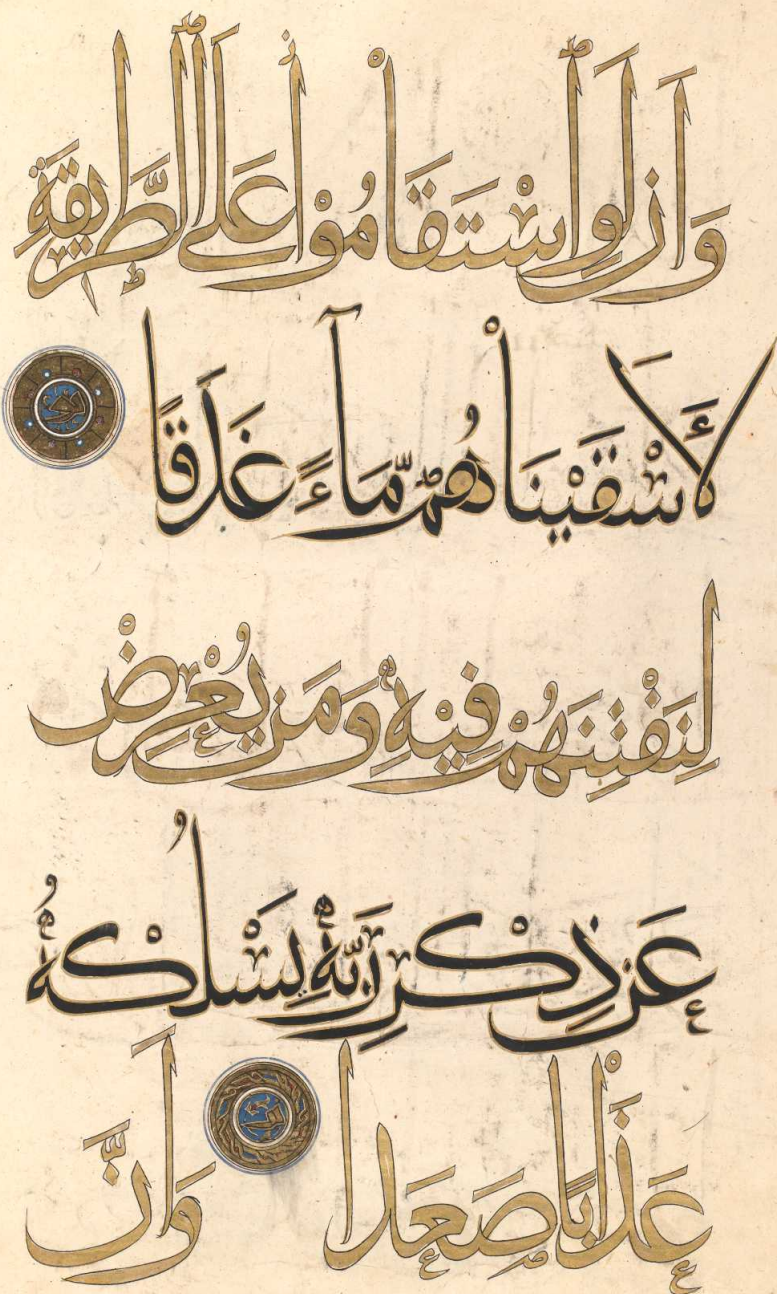 وَاَن لَوِ اسْتَقَامُوْا عَلَى الطَّرِيقَةِ
لَأَسْقَيْنَاهُمْ مَّآءً غَدَقًا
لِنَفْتِنَهُمْ فِيْهِ وَمَن يُعْرِضْ
عَن ذِكْرِ رَبِّهٖ يَسْلُكْهُ
عَذَابًا صَعَدا وَاَنَّ